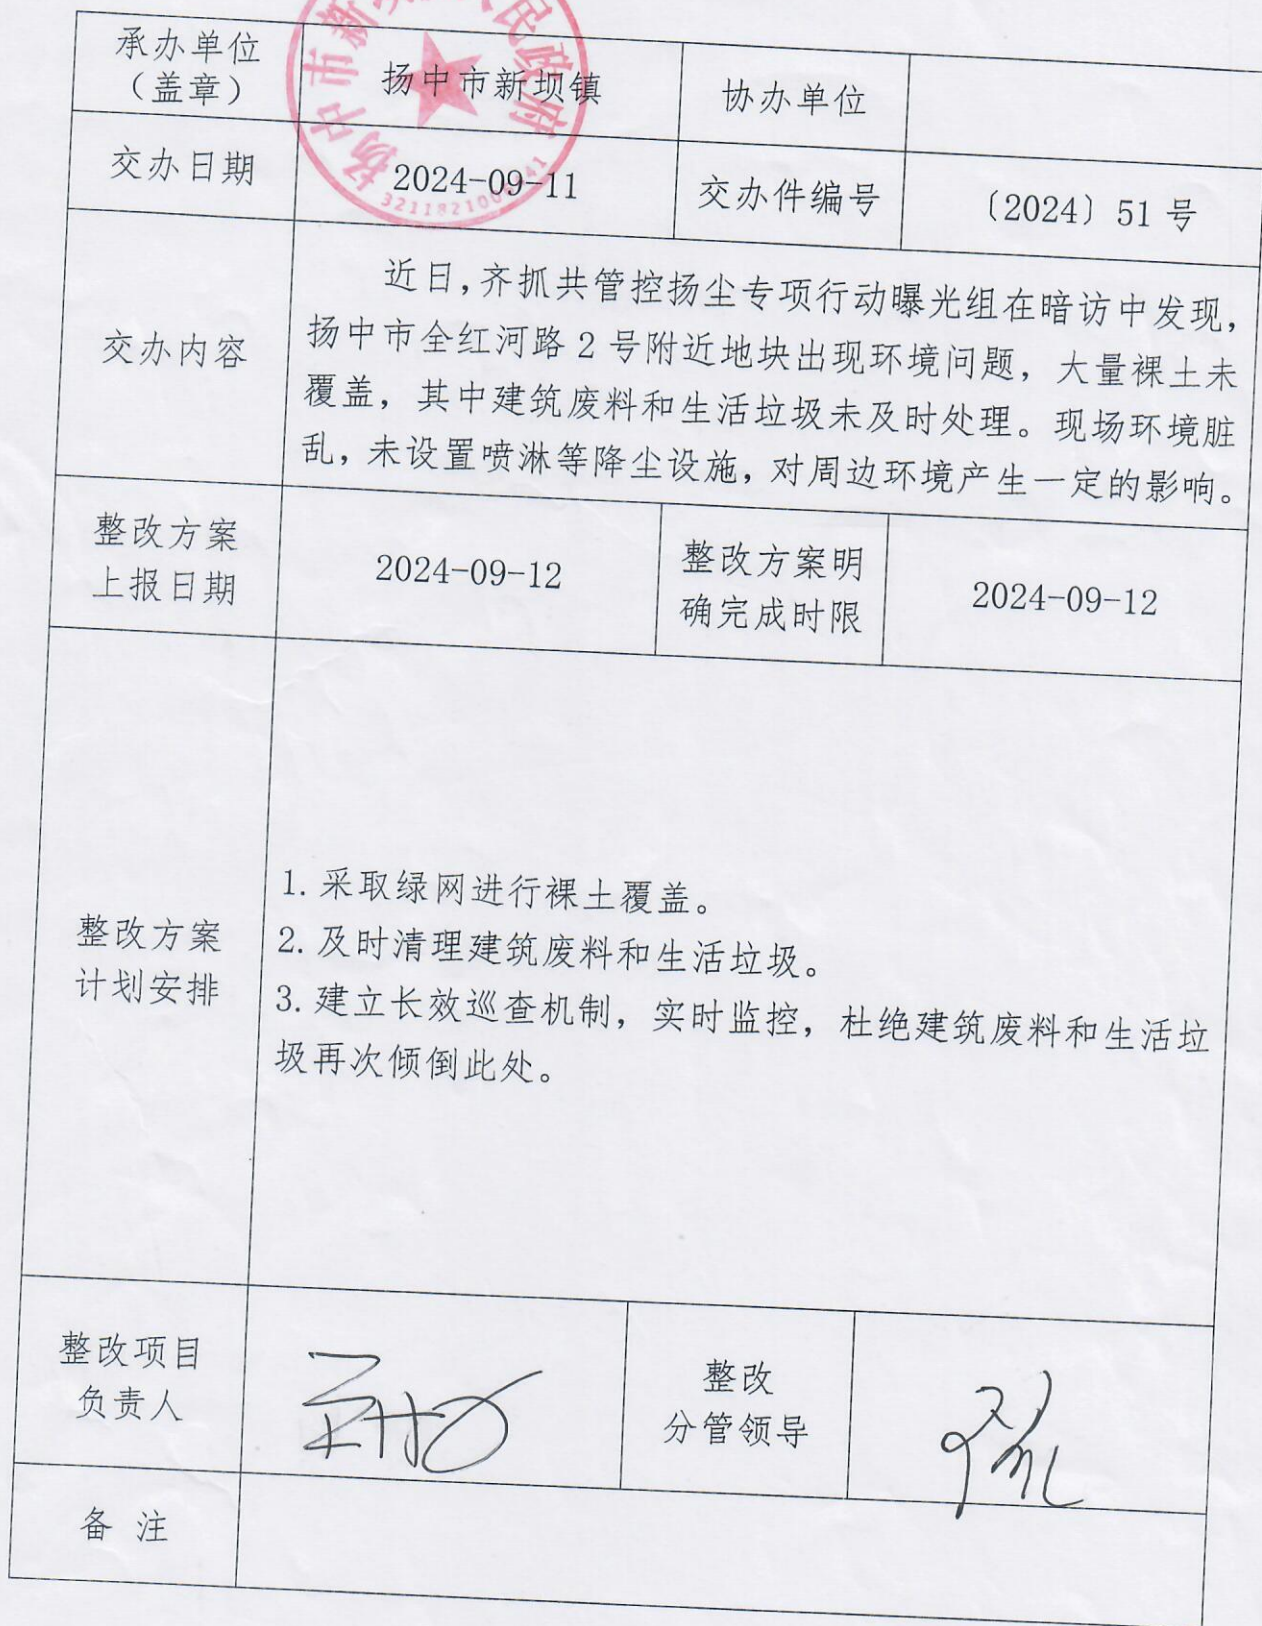 承办单位
（盖章）
扬中市新坝镇
协办单位
交办日期
2024-09-11
交办件编号
〔2024〕51号
交办内容
近日，齐抓共管控扬尘专项行动曝光组在暗访中发现，
扬中市全红河路 2 号附近地块出现环境问题，大量裸土未
覆盖，其中建筑废料和生活垃圾未及时处理。现场环境脏
乱，未设置喷淋等降尘设施，对周边环境产生一定的影响。
整改方案
上报日期
2024-09-12
整改方案明
确完成时限
2024-09-12
整改方案
计划安排
1.采取绿网进行裸土覆盖。
2.及时清理建筑废料和生活垃圾。
3.建立长效巡查机制，实时监控，杜绝建筑废料和生活垃
圾再次倾倒此处。
整改项目
负责人
整改
分管领导
备 注